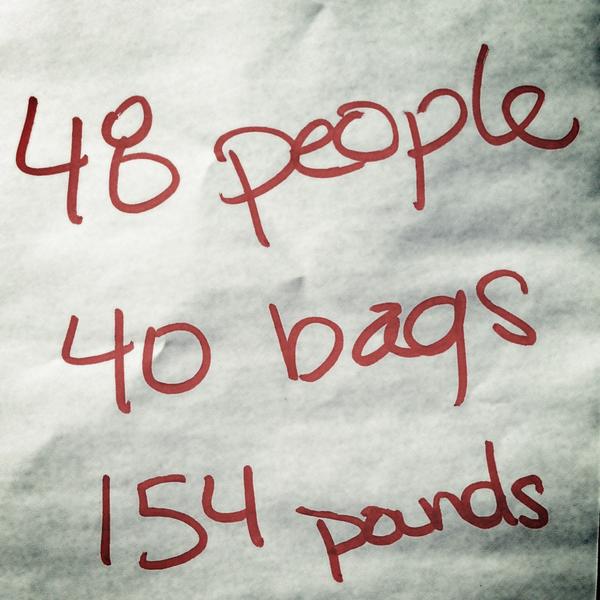 48 people
40 bags
154 pounds